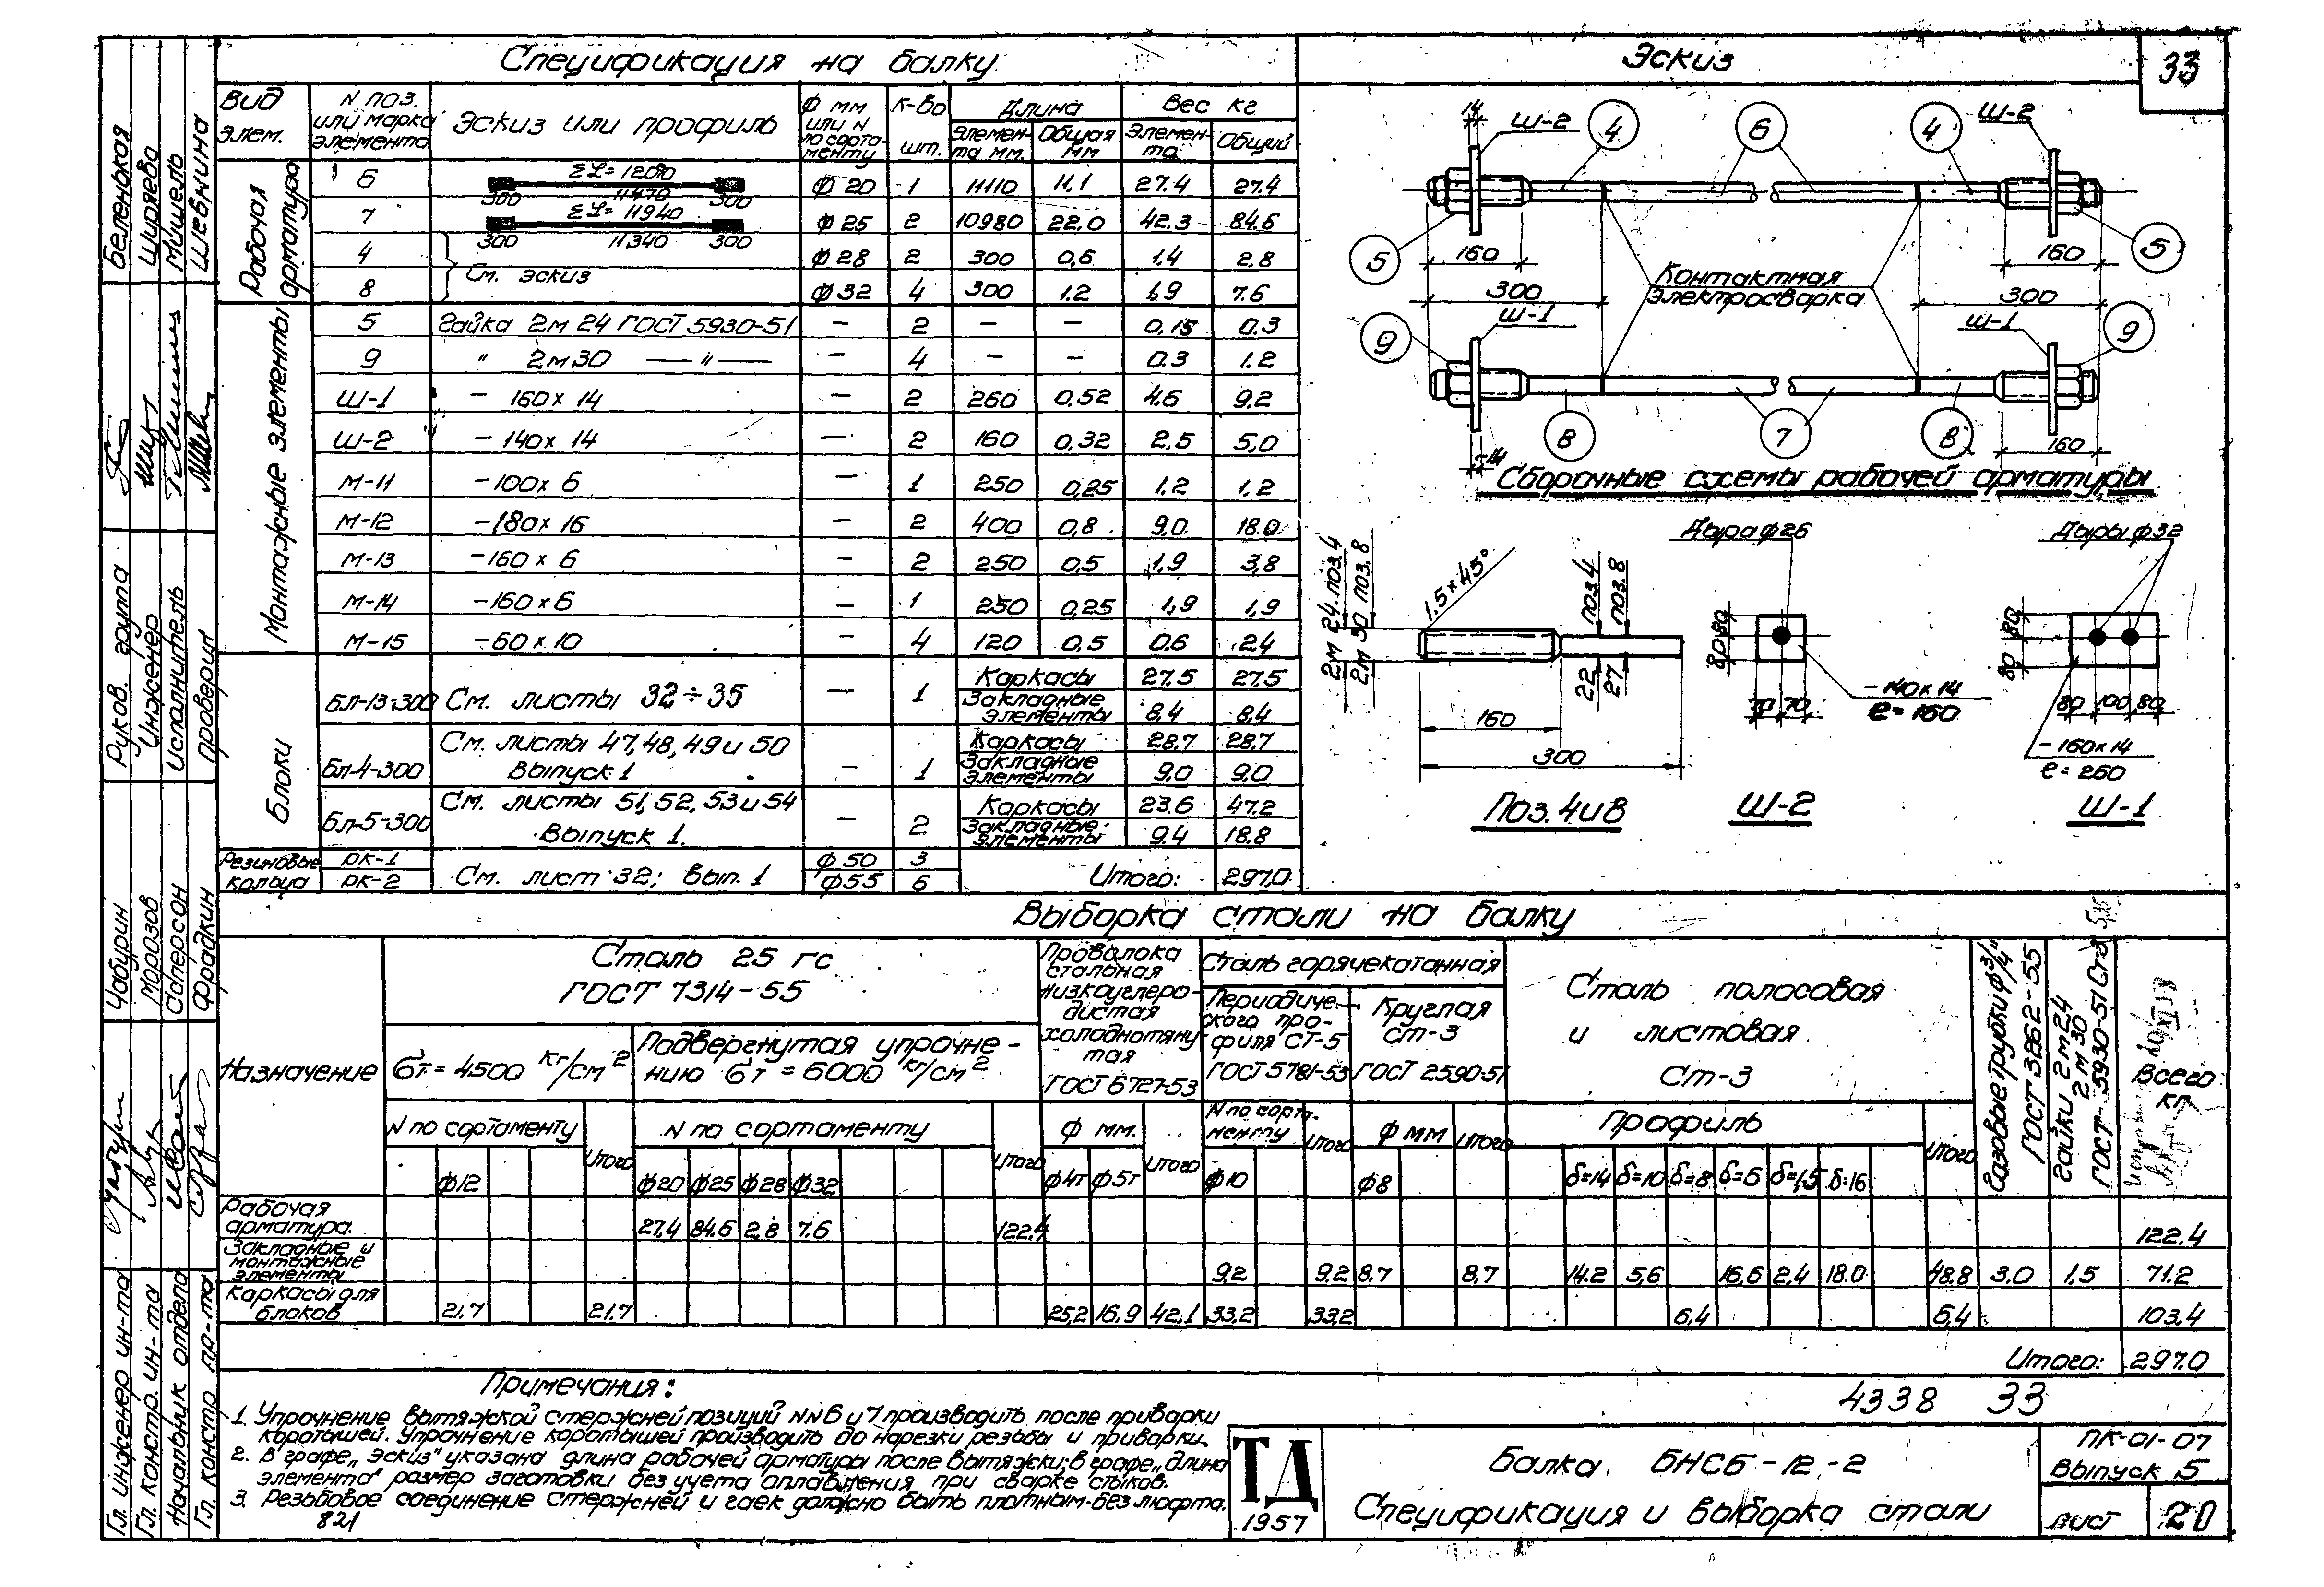 Спецификация на балку
Эскиз
33
Вид элем.
N поз. или марка элемента
Эскиз или профиль
Ф мм или N по сорта-менту
к-во шт.
Длина
Элемен-та мм.
Общая мм
Вес кг
Элемен-та
Общий
Рабочая арматура
6 ΣL=12070 300 11470 300 Ф 20 1 11110 11,1 27.4 27.4
7 ΣL=11940 300 11340 300 Ф 25 2 10980 22.0 42.3 84.6
4 См. эскиз Ф 28 2 300 0,6 1.4 2.8
8 Ф 32 4 300 1.2 1,9 7.6
Монтажные элементы
5 Гайка 2м 24 ГОСТ 5930-51 — 2 — — 0,15 0.3
9 " 2м30 — " — — 4 — — 0.3 1.2
Ш-1 — 160 x 14 — 2 260 0,52 4.6 9.2
Ш-2 — 140 x 14 — 2 160 0,32 2.5 5,0
М-11 —100 x 6 — 1 250 0,25 1.2 1,2
М-12 —180 x 16 — 2 400 0,8 9.0 18.0
М-13 —160 x 6 — 2 250 0,5 1,9 3,8
М-14 —160 x 6 — 1 250 0,25 1,9 1,9
М-15 —60 x 10 — 4 120 0,5 0.6 2.4
Блоки
Бл-13-300 См. листы 32÷35 — 1 Каркасы 27.5 27.5
Закладные элементы 8.4 8.4
Бл-4-300 См. листы 47, 48, 49 и 50 Выпуск 1 — 1 Каркасы 28.7 28.7
Закладные элементы 9.0 9.0
Бл-5-300 См. листы 51, 52, 53 и 54 Выпуск 1. — 2 Каркасы 23.6 47.2
Закладные элементы 9.4 18.8
Резиновые кольца
РК-1 Ф 50 3
РК-2 См. лист 32; Вып. 1 Ф55 6 Итого: 297.0
14 Ш-2 4 6 4 Ш-2
5 160 160 5
300 Контактная электросварка 300
9 Ш-1 Ш-1 9
8 7 8 160
14
Сборочные схемы рабочей арматуры
2м 24. поз. 4
2м 30 поз. 8
1.5 x 45°
поз 4
поз. 8
22
27
160
300
Поз. 4 и 8
Дыра ф 26
80 80
70 70
—140 x 14
ℓ=160
Ш-2
Дыры ф 32
80 80
80 100 80
—160 x 14
ℓ=260
Ш-1
Выборка стали на балку
Назначение
Сталь 25 гс
ГОСТ 7314-55
бт=4500 кг/см²
Подвергнутая упрочне-
нию бт=6000 кг/см²
N по сортаменту
Итого
N по сортаменту
Итого
Ф12 Ф20 Ф25 Ф28 Ф32
Проволока стальная низкоуглеро-дистая холоднотяну-тая
ГОСТ 6727-53
Ф мм.
Итого
Ф4т Ф5т
Сталь горячекатанная
Периодиче-ского про-филя СТ-5
ГОСТ 5781-53
Круглая ст-3
ГОСТ 2590-51
N по сорта-менту
Итого
Ф10
Ф мм
Итого
Ф8
Сталь полосовая
и листовая
Ст-3
Профиль
Итого
δ=14 δ=10 δ=8 δ=6 δ=1,5 δ=16
Газовые трубки ф 3/4"
ГОСТ 3262-55
Гайки 2м24
2м 30
ГОСТ 5930-51 Ст3
Всего кг.
Рабочая арматура. 27,4 84.6 2,8 7.6 122.4 122.4
Закладные и монтажные элементы 9.2 9.2 8.7 8,7 14.2 5,6 16,6 2,4 18.0 48.8 3.0 1.5 71.2
Каркасы для блоков 21.7 21.7 25,2 16,9 42,1 33,2 33,2 6.4 6.4 103.4
Итого: 297.0
4338 33
Примечания:
1. Упрочнение вытяжкой стержней позиций NN 6 и 7 производить после приварки
коротышей. Упрочнение коротышей производить до нарезки резьбы и приварки.
2. В графе „Эскиз" указана длина рабочей арматуры после вытяжки; в графе „Длина
элемента" размер заготовки без учета оплавления при сварке стыков.
3. Резьбовое соединение стержней и гаек должно быть плотным-без люфта.
821
ТД
1957
Балка БНСБ-12-2
Спецификация и выборка стали
ПК-01-07
Выпуск 5
лист 20
Беленькая
Ширяева
Мишель
Шевнина
Руков. группа
Инженер
Исполнитель
проверил
Чабурин
Морозов
Саперсон
Фрадкин
Гл. инженер ин-та
Гл. констр. ин-та
Начальник отдела
Гл. констр пр-та